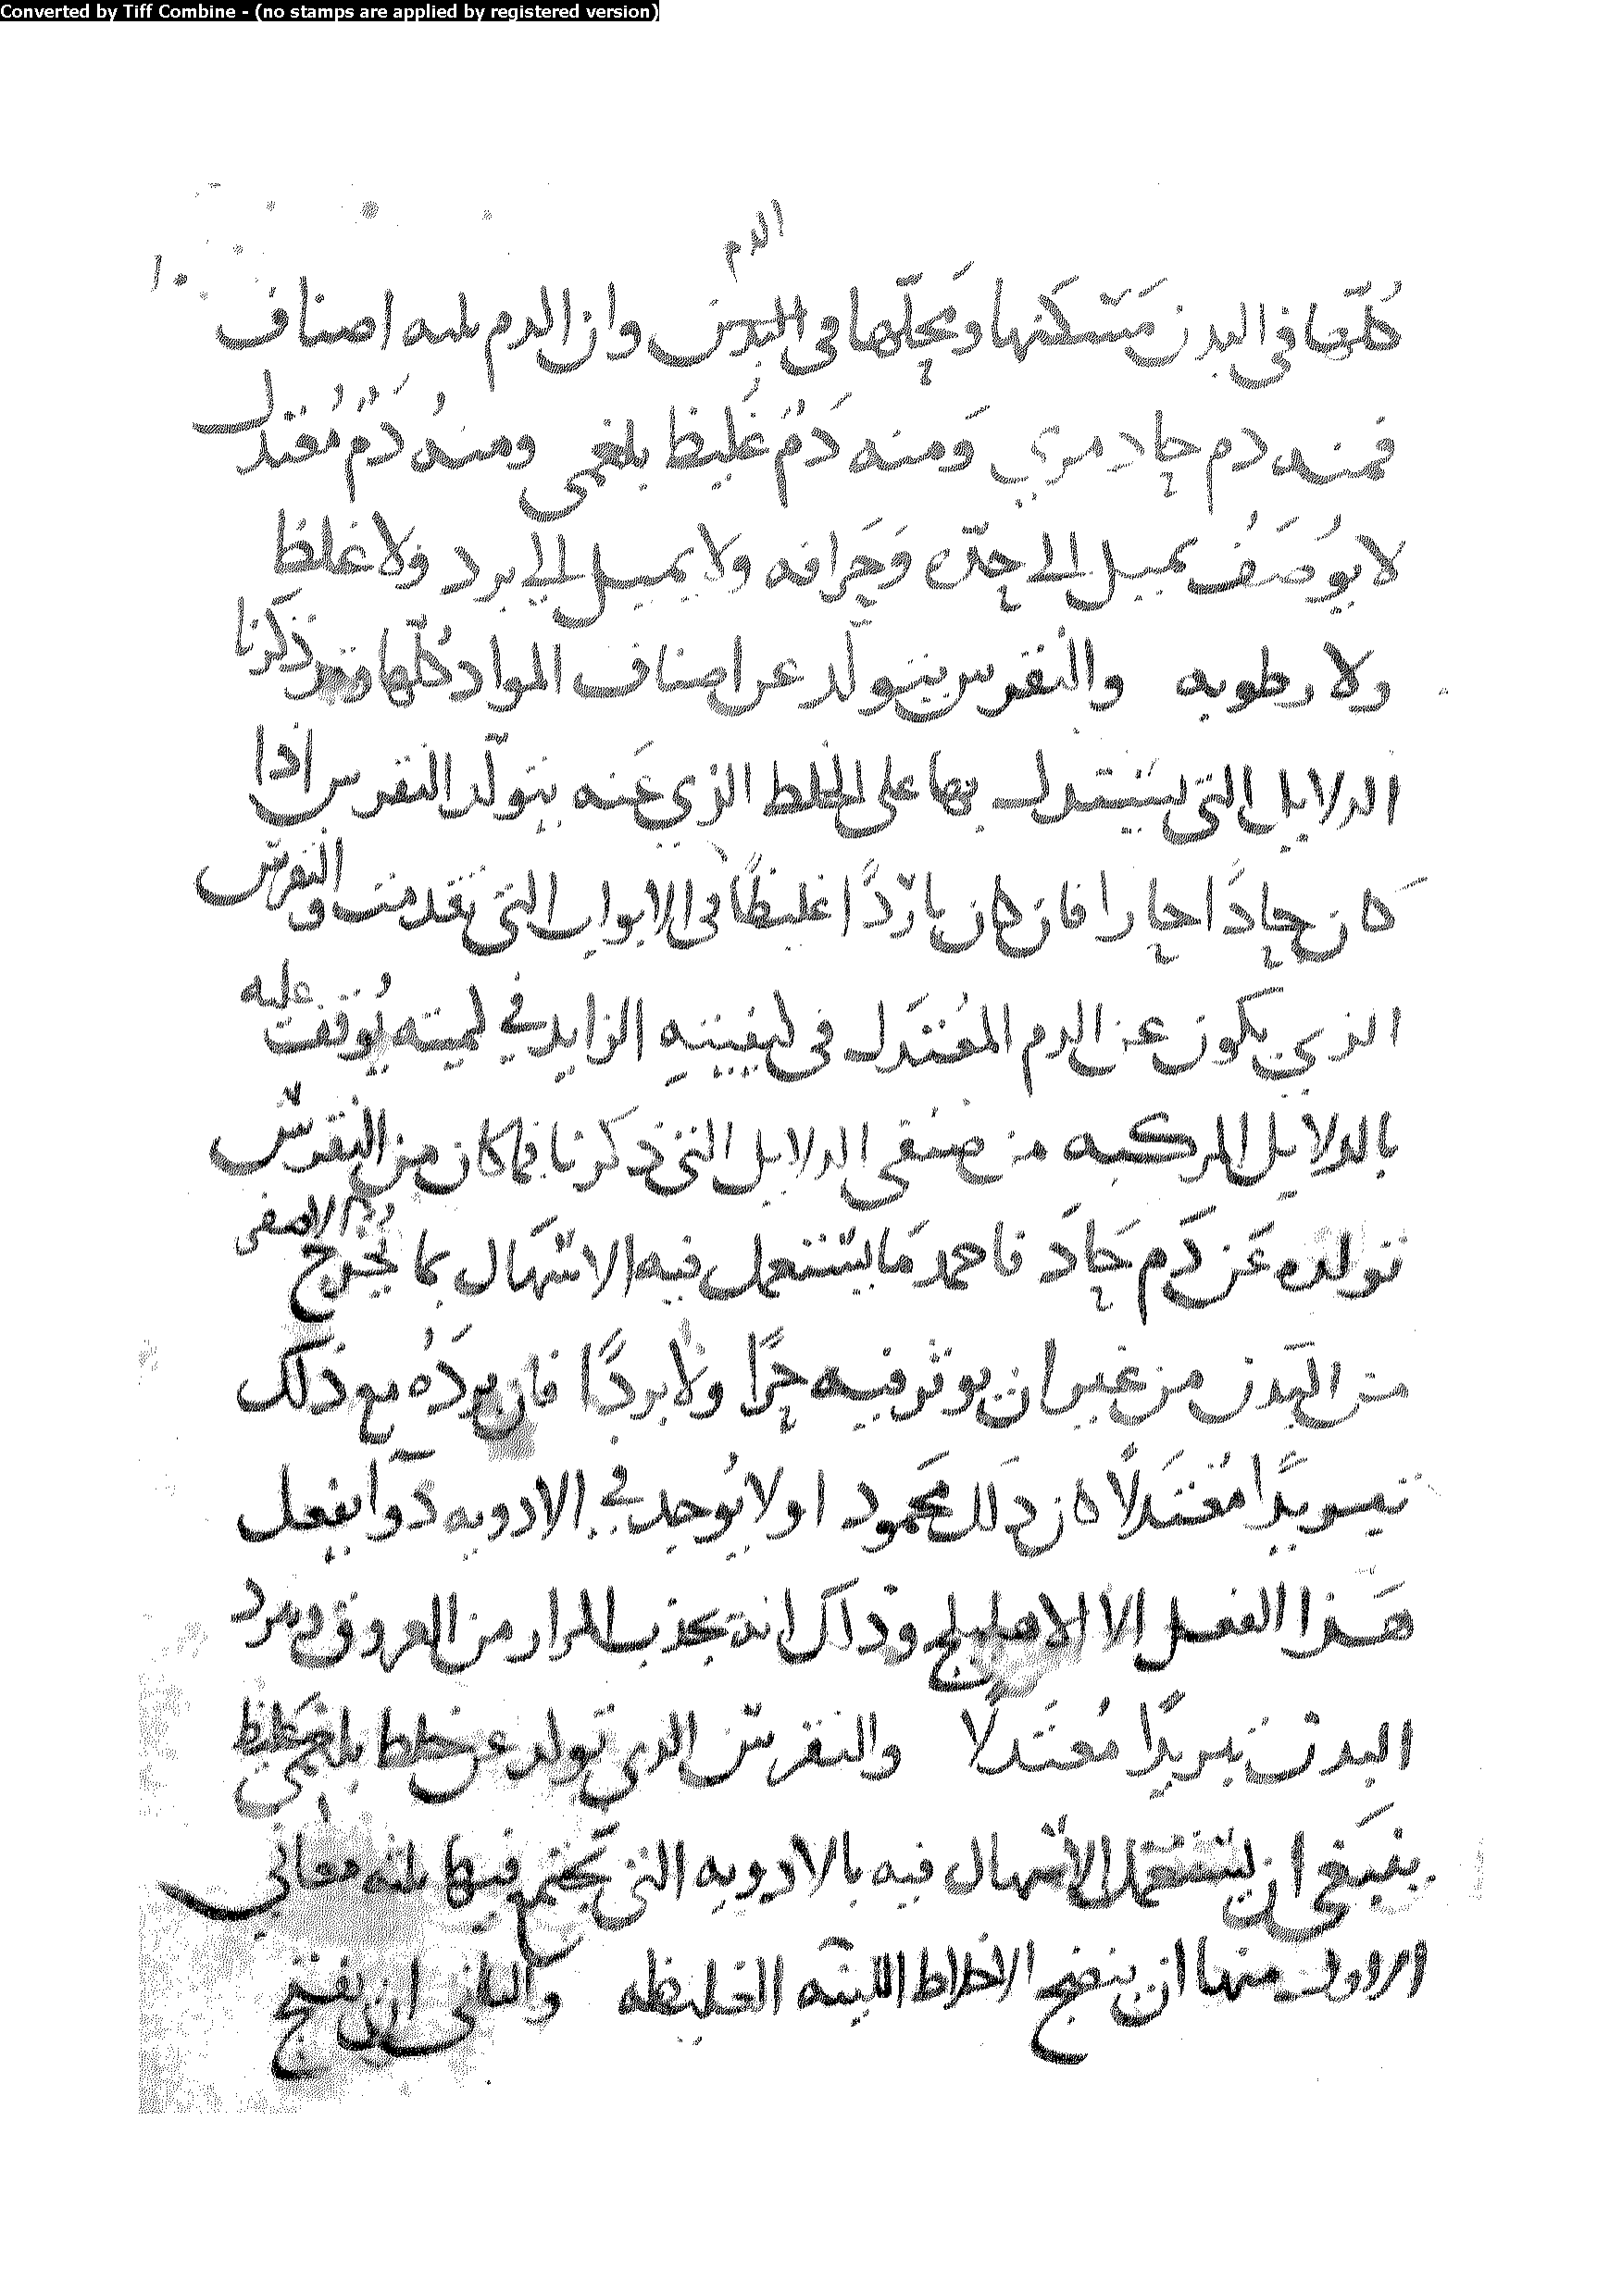 Converted by Tiff Combine - (no stamps are applied by registered version)
الدم
١٠
كُلّها في البدن مَسْكنها وَمحلّها في البدن وان الدم ثلثه اصناف
فمنه دم حاد مري وَمنه دَمٌ غَليظ بلغمى ومنهُ دَمٌ مُعتدل
لا يُوصَفُ بميل الى حدّه وَحَرافه ولا يميل الى برد ولا غلظ
ولا رطوبه والنقرس يتولّد عن اصناف المواد كُلّها وقد ذكرنا
الدلايل التي يستدل بها على الخلط الذي عَنه يتولّد النقرس اذا
كان حادًا حارا فان كان باردًا غليظًا في الابواب التي تقدمت والنقرس
الذي يكون عن الدم المُعتدَل في كيفيته الزايد في كميته يُوقف عليه
بالدلايل المركبه من صنفى الدلايل التي ذكرنا فما كان من النقرس
تولده عَن دَم حَادَ فاحمد مَا يستعمل فيه الاسهَال بما يخرج المره الاصفر
من البَدن من غير ان يوثر فيه حرًّا ولا بردًا فان بردَهُ مع ذلك
تبريدًا مُعتدَلًا كان ذلك محمود اولا يُوجد في الادويه دَوآ يفعل
هَذا الفعل الا الاهليلج وذاك انه يجذب المرار من العروق ويبرد
البدن تبريدًا مُعتَدلًا والنقرس الذي تولد عن خلط بلغمي غليظ
ينبَغي ان يستعمل الاسهال فيه بالادويه التي تجتمع فيها ثلثه معاني
الاول منها ان ينضج الاخلاط اللينه الغليظه والثاني ان يفتح